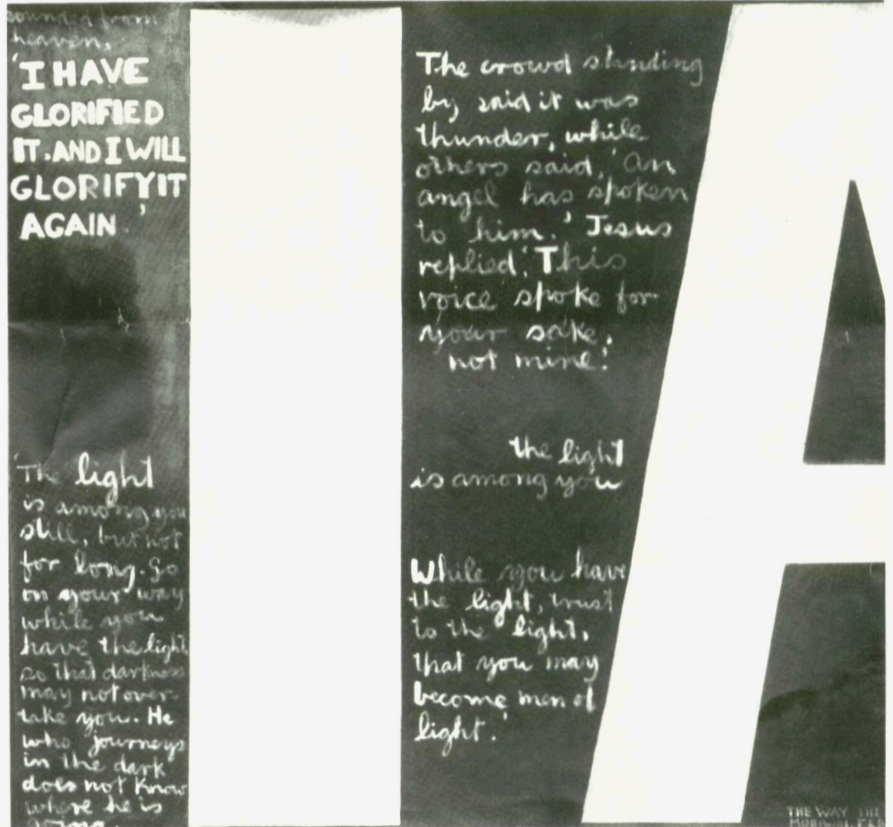 sounded from
heaven,
'I HAVE
GLORIFIED
IT. AND I WILL
GLORIFY IT
AGAIN.'
'The light
is among you
still, but not
for long. Go
on your way
while you
have the light,
so that darkness
may not over-
take you. He
who journeys
in the dark
does not know
where he is
going.
I
The crowd standing
by said it was
thunder, while
others said, 'an
angel has spoken
to him.' Jesus
replied, 'This
voice spoke for
your sake,
not mine.'
the light
is among you
While you have
the light, trust
to the light,
that you may
become men of
light.'
A
THE WAY THE